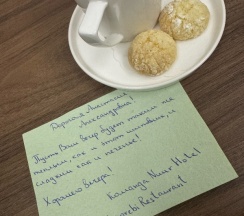 Дорогая Анастасия
Александровна!
Пусть Ваш вечер будет таким же
тёплым, как и этот напиток, и
сладким как и печенье!
Хорошего вечера!
Команда Nur Hotel
Restaurant